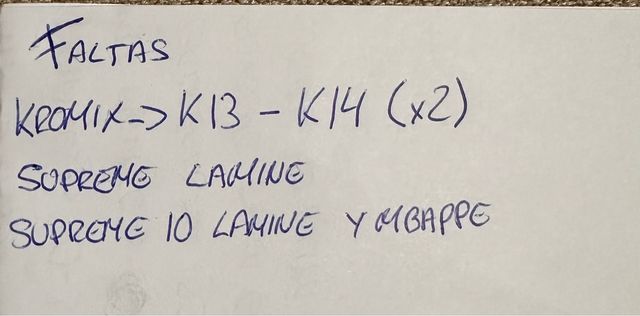 FALTAS
KROMIX -> K13 - K14 (x2)
SUPREME LAMINE
SUPREME 10 LAMINE Y MBAPPE